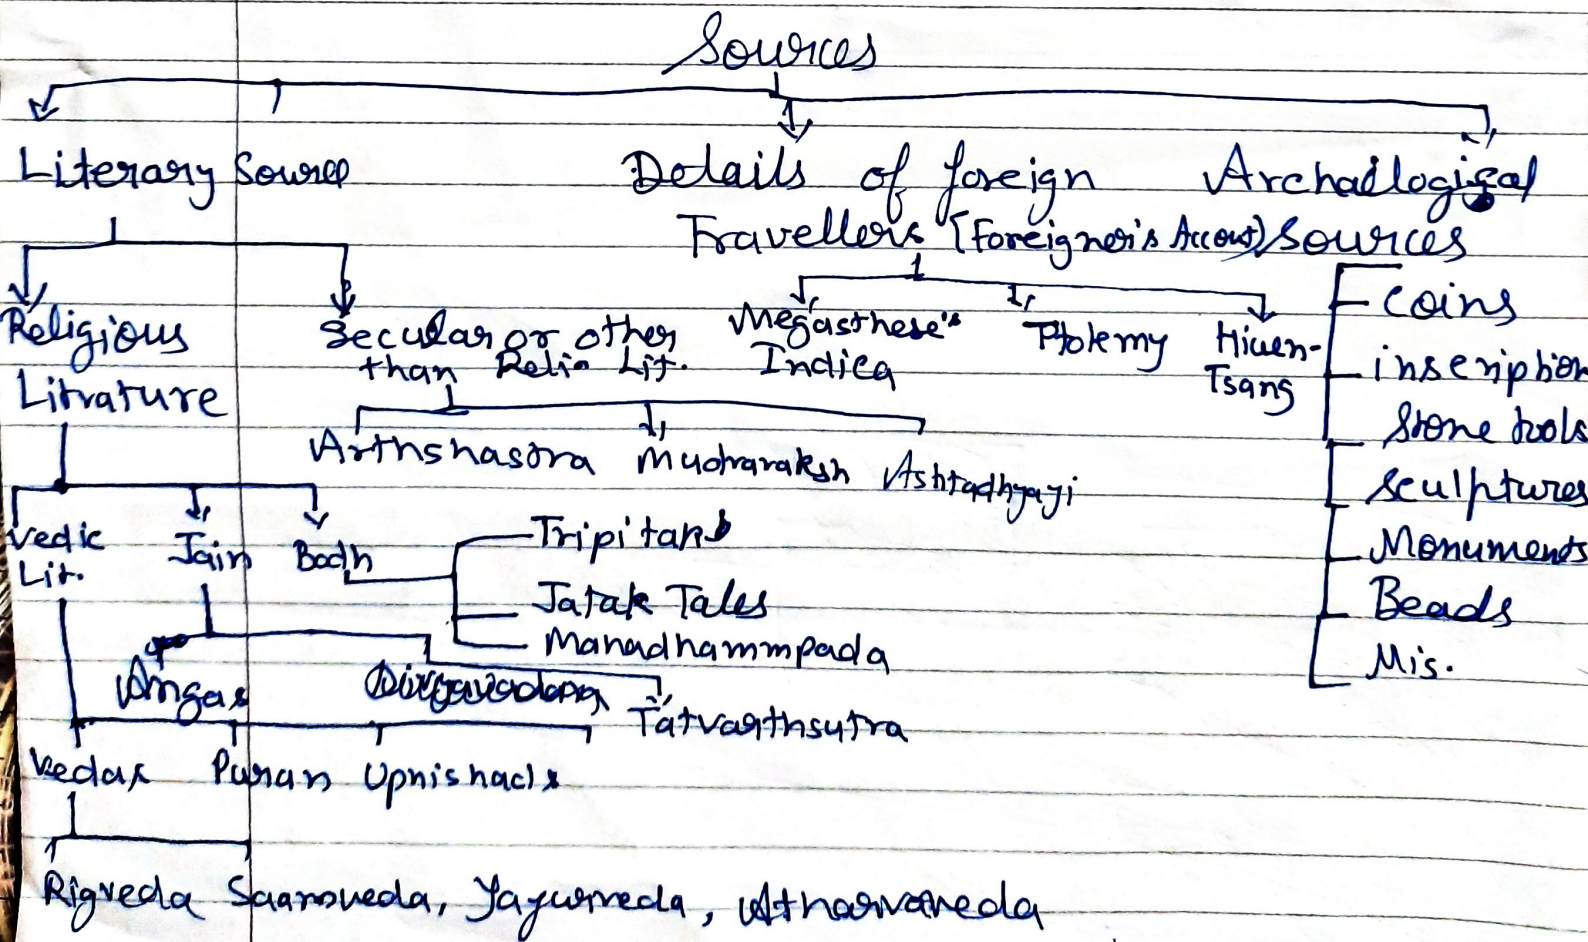 Sources
Literary Source
Details of foreign
Travellers (Foreigner's Account)
Archaelogical
Sources
Religious
Litrature
Secular or other
than Relig. Lit.
Megasthese's
Indica
Ptolemy
Hiuen-
Tsang
Coins
inscription
Stone tools
Sculptures
Monuments
Beads
Mis.
Arthshastra Mudraraksh Ashtadhyayi
Vedic
Lit.
Jain
Bodh
Tripitak
Jatak Tales
Manadhammpada
Angas
Tatvarthsutra
Vedas Puran Upnishads
Rigveda Saamveda, Yajurveda, Atharvaveda